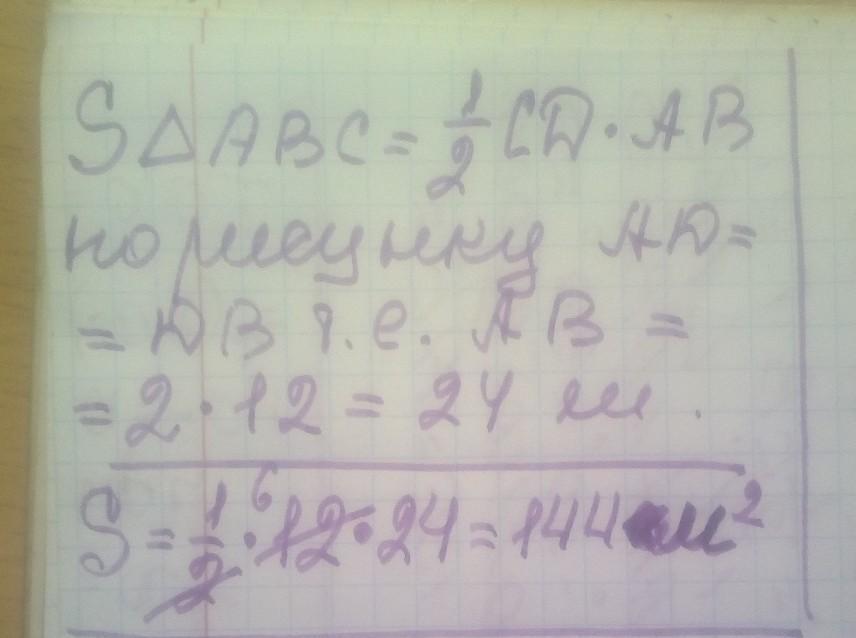 S△ABC = 1/2 CD · AB
по рисунку AD =
= DB т.е. AB =
= 2 · 12 = 24 м.
S = 1/2 · 6 12 · 24 = 144 м²